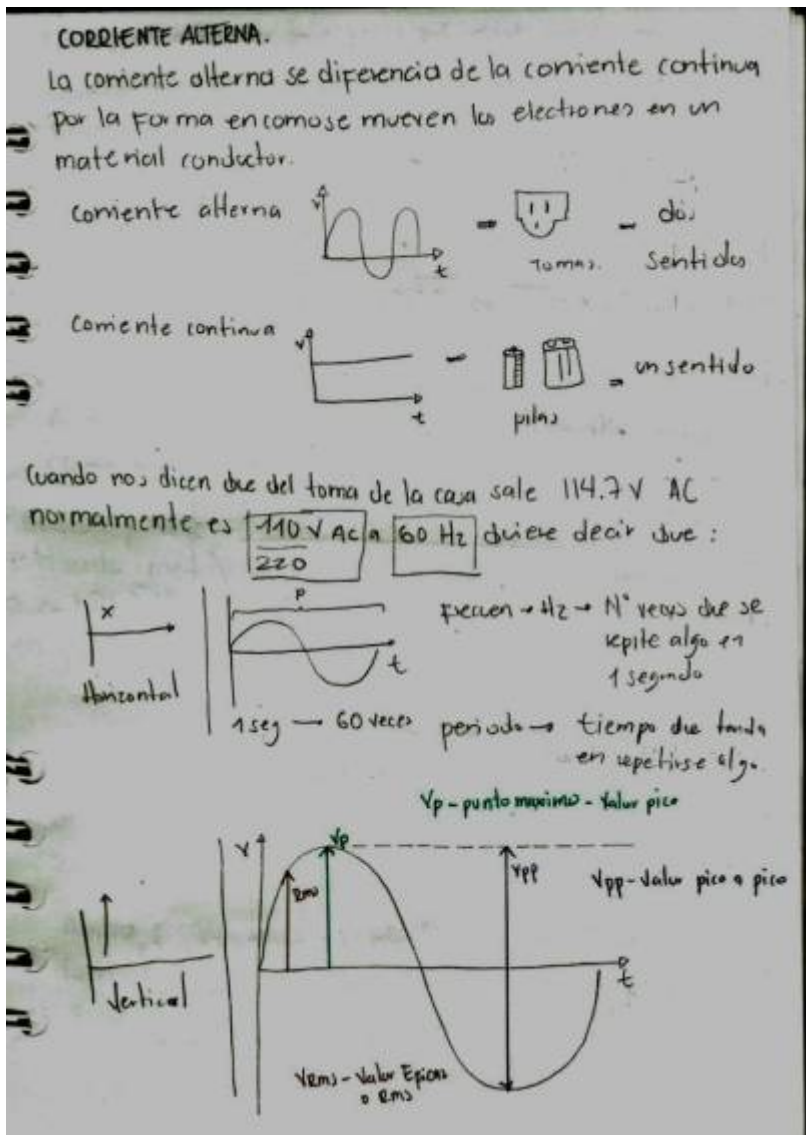 CORRIENTE ALTERNA.
La corriente alterna se diferencia de la corriente continua
por la forma en como se mueven los electrones en un
material conductor.
corriente alterna
V
t
=
Tomas.
- dos
sentidos
Corriente continua
V
t
-
pilas
= un sentido
Cuando nos dicen que del toma de la casa sale 114.7 V AC
normalmente es 110 V AC a 60 Hz quiere decir que:
220
x
Horizontal
P
t
1 seg → 60 veces
frecuen → Hz → N° veces que se
repite algo en
1 segundo
periodo → tiempo que tarda
en repetirse algo.
Vp - punto maximo - Valor pico
V
Rms
Vp
Vpp
t
Vpp - Valor pico a pico
Vertical
VRms - Valor Eficas
o Rms